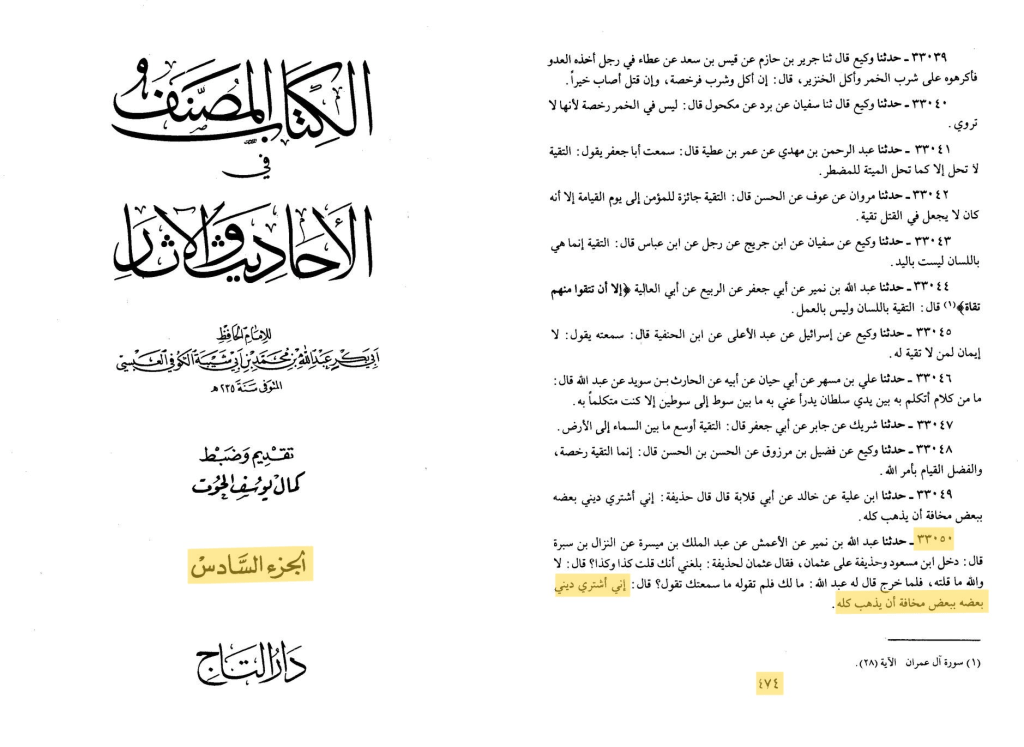 الكِتابُ المُصَنَّف
في
الأحاديث والآثار
للإمام الحافظ
أبي بكر عبد الله بن محمد بن أبي شيبة الكوفي العبسي
المتوفى سنة ٢٣٥ هـ
تقديم وضبط
كمال يوسف الحوت
الجزء السادس
دار التاج
٣٣٠٣٩ ـ حدثنا وكيع قال ثنا جرير بن حازم عن قيس بن سعد عن عطاء في رجل أخذه العدو
فأكرهوه على شرب الخمر وأكل الخنزير، قال: إن أكل وشرب فرخصة، وإن قتل أصاب خيراً.
٣٣٠٤٠ ـ حدثنا وكيع قال ثنا سفيان عن برد عن مكحول قال: ليس في الخمر رخصة لأنها لا
تروي.
٣٣٠٤١ ـ حدثنا عبد الرحمن بن مهدي عن عمر بن عطية قال: سمعت أبا جعفر يقول: التقية
لا تحل إلا كما تحل الميتة للمضطر.
٣٣٠٤٢ ـ حدثنا مروان عن عوف عن الحسن قال: التقية جائزة للمؤمن إلى يوم القيامة إلا أنه
كان لا يجعل في القتل تقية.
٣٣٠٤٣ ـ حدثنا وكيع عن سفيان عن ابن جريج عن رجل عن ابن عباس قال: التقية إنما هي
باللسان ليست باليد.
٣٣٠٤٤ ـ حدثنا عبد الله بن نمير عن أبي جعفر عن الربيع عن أبي العالية ﴿إلا أن تتقوا منهم
تقاة﴾(١) قال: التقية باللسان وليس بالعمل.
٣٣٠٤٥ ـ حدثنا وكيع عن إسرائيل عن عبد الأعلى عن ابن الحنفية قال: سمعته يقول: لا
إيمان لمن لا تقية له.
٣٣٠٤٦ ـ حدثنا علي بن مسهر عن أبي حيان عن أبيه عن الحارث بن سويد عن عبد الله قال:
ما من كلام أتكلم به بين يدي سلطان يدرأ عني به ما بين سوط إلى سوطين إلا كنت متكلماً به.
٣٣٠٤٧ ـ حدثنا شريك عن جابر عن أبي جعفر قال: التقية أوسع ما بين السماء إلى الأرض.
٣٣٠٤٨ ـ حدثنا وكيع عن فضيل بن مرزوق عن الحسن بن الحسن قال: إنما التقية رخصة،
والفضل القيام بأمر الله.
٣٣٠٤٩ ـ حدثنا ابن علية عن خالد عن أبي قلابة قال قال حذيفة: إني أشتري ديني بعضه
ببعض مخافة أن يذهب كله.
٣٣٠٥٠ ـ حدثنا عبد الله بن نمير عن الأعمش عن عبد الملك بن ميسرة عن النزال بن سبرة
قال: دخل ابن مسعود وحذيفة على عثمان، فقال عثمان لحذيفة: بلغني أنك قلت كذا وكذا؟ قال: لا
والله ما قلته، فلما خرج قال له عبد الله: ما لك فلم تقوله ما سمعتك تقول؟ قال: إني أشتري ديني
بعضه ببعض مخافة أن يذهب كله.
(١) سورة آل عمران الآية (٢٨).
٤٧٤